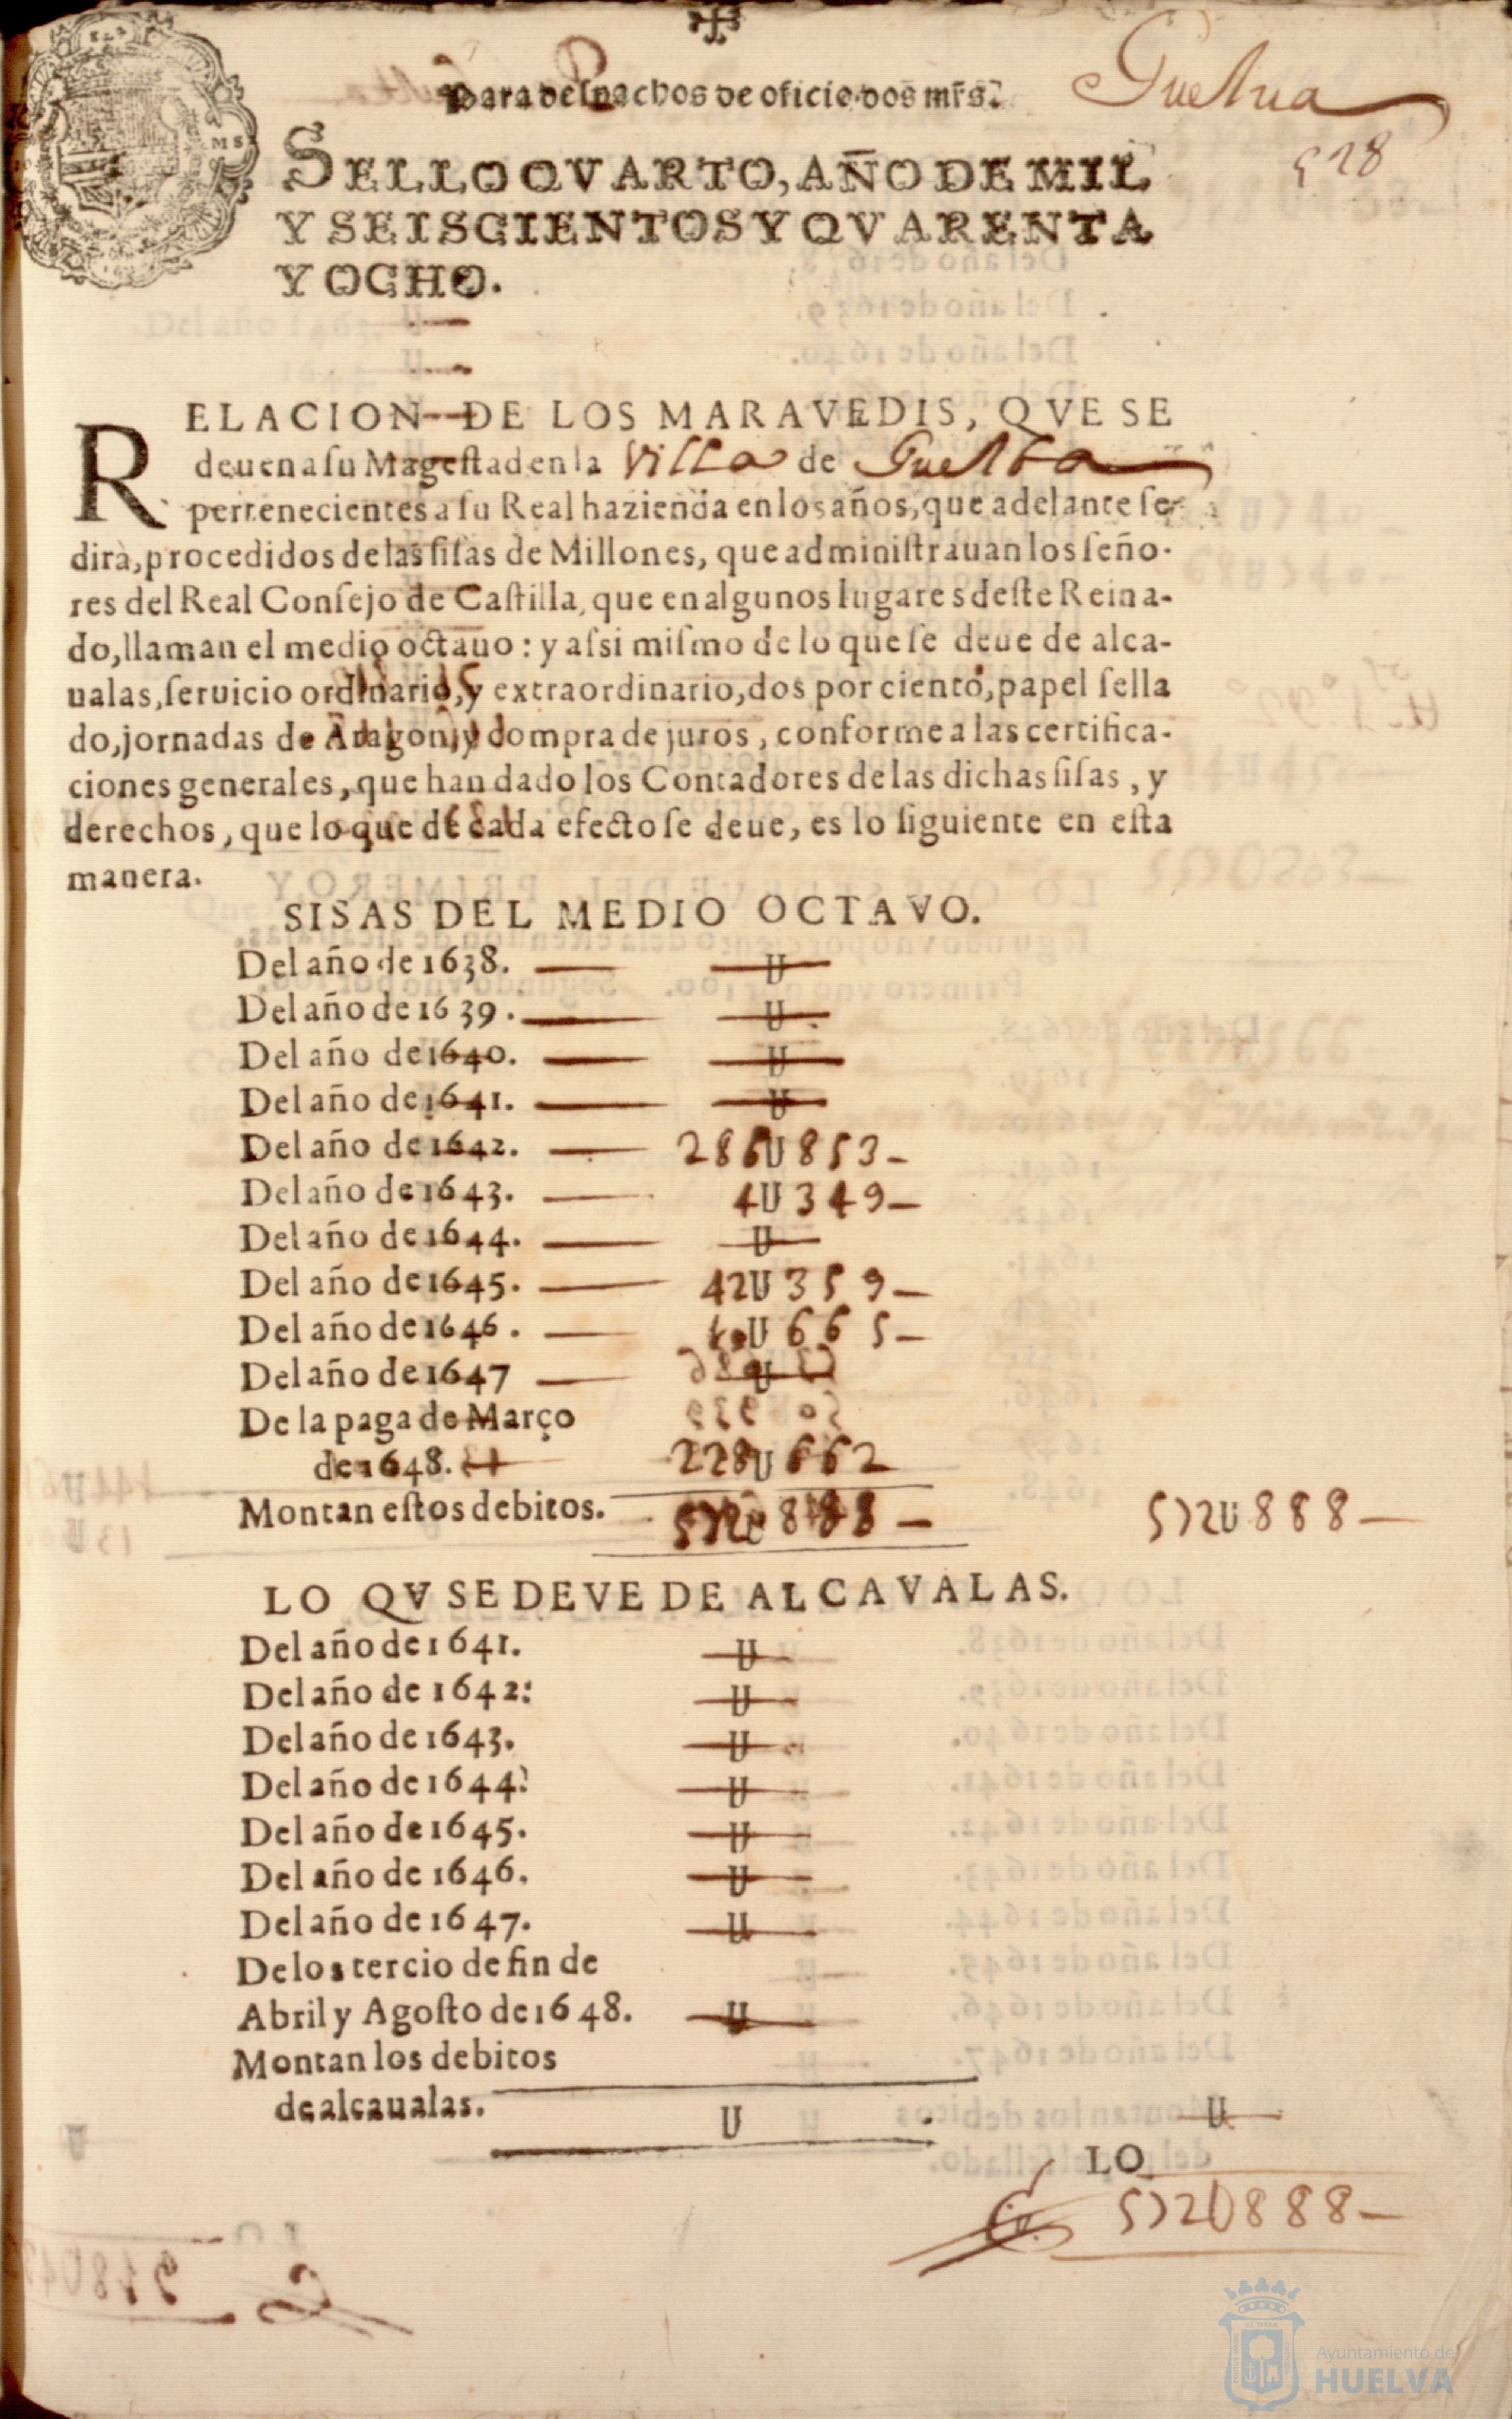 Para despachos de oficio dos mrs.
Guelua
528
SELLO QVARTO, AÑO DE MIL
Y SEISCIENTOS Y QVARENTA
Y OCHO.
RELACION DE LOS MARAVEDIS, QVE SE
deuen a su Magestad en la Villa de Guelba
pertenecientes a su Real hazienda en los años, que adelante se
dirà, procedidos de las sisas de Millones, que administrauan los seño-
res del Real Consejo de Castilla, que en algunos lugares deste Reina-
do, llaman el medio octauo: y assi mismo de lo que se deue de alca-
ualas, seruicio ordinario, y extraordinario, dos por ciento, papel sella
do, jornadas de Aragon, y compra de juros, conforme a las certifica-
ciones generales, que han dado los Contadores de las dichas sisas, y
derechos, que lo que de cada efecto se deue, es lo siguiente en esta
manera.
SISAS DEL MEDIO OCTAVO.
Del año de 1638. — U
Del año de 1639. — U
Del año de 1640. — U
Del año de 1641. — U
Del año de 1642. — 286U853
Del año de 1643. — 4U349
Del año de 1644. — U
Del año de 1645. — 42U359
Del año de 1646. — U665
Del año de 1647 — U
De la paga de Março
de 1648. 228U662
Montan estos debitos. 572U888 572U888
LO QV SE DEVE DE ALCAVALAS.
Del año de 1641. U
Del año de 1642: U
Del año de 1643. U
Del año de 1644. U
Del año de 1645. U
Del año de 1646. U
Del año de 1647. U
De los tercio de fin de
Abril y Agosto de 1648. U
Montan los debitos
de alcaualas. U U
LO
572U888
Ayuntamiento de
HUELVA